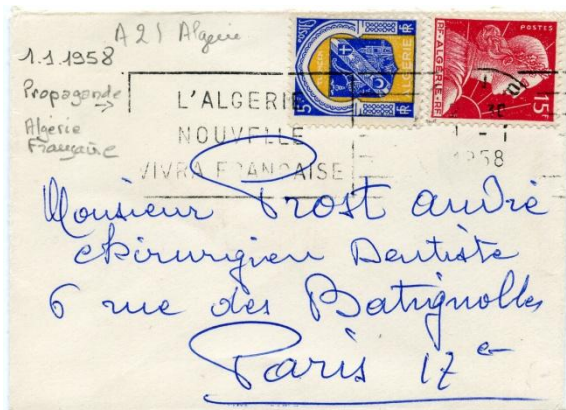 A21 Algerie
1.1.1958
Propagande
Algérie
Française
L'ALGERIE
NOUVELLE
VIVRA FRANÇAISE
5F
ALGERIE
RF
POSTES
RF. ALGERIE. RF
15F
1 - 1
1958
Monsieur Prost andré
chirurgien Dentiste
6 rue des Batignolles
Paris 17e